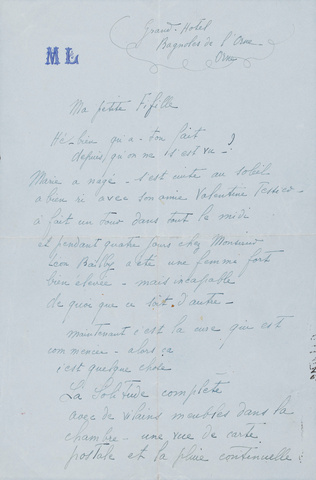 Grand-Hotel
Bagnoles de l'Orne
Orne
ML
Ma petite Fifille
Hé bien qu'a-t-on fait
depuis qu'on ne s'est vu - ?
Marie a nagé - s'est mise au soleil
a bien ri avec son amie Valentine Tessier -
a fait un tour dans tout le midi
et pendant quatre jours chez Monsieur
Léon Bailby a été une femme fort
bien élevée - mais incapable
de quoi que ce soit d'autre -
maintenant c'est la cure qui est
commencée - alors ça
c'est quelque chose
La Solitude complète
avec de vilains meubles dans la
chambre - une vue de carte
postale et la pluie continuelle :